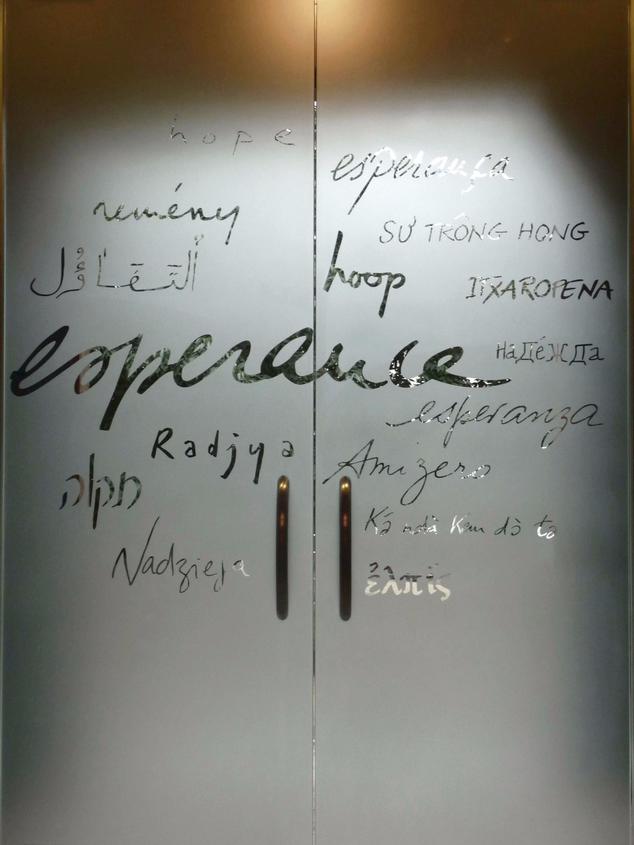 hope
esperança
remény
SỰ TRÔNG HONG
التَفَاؤُل
hoop
ITXAROPENA
esperance
НаДéЖДа
esperanza
Radjya
Amizero
תקוה
Kâ ndâ Kem dò to
Nadzieja
ἐλπίς